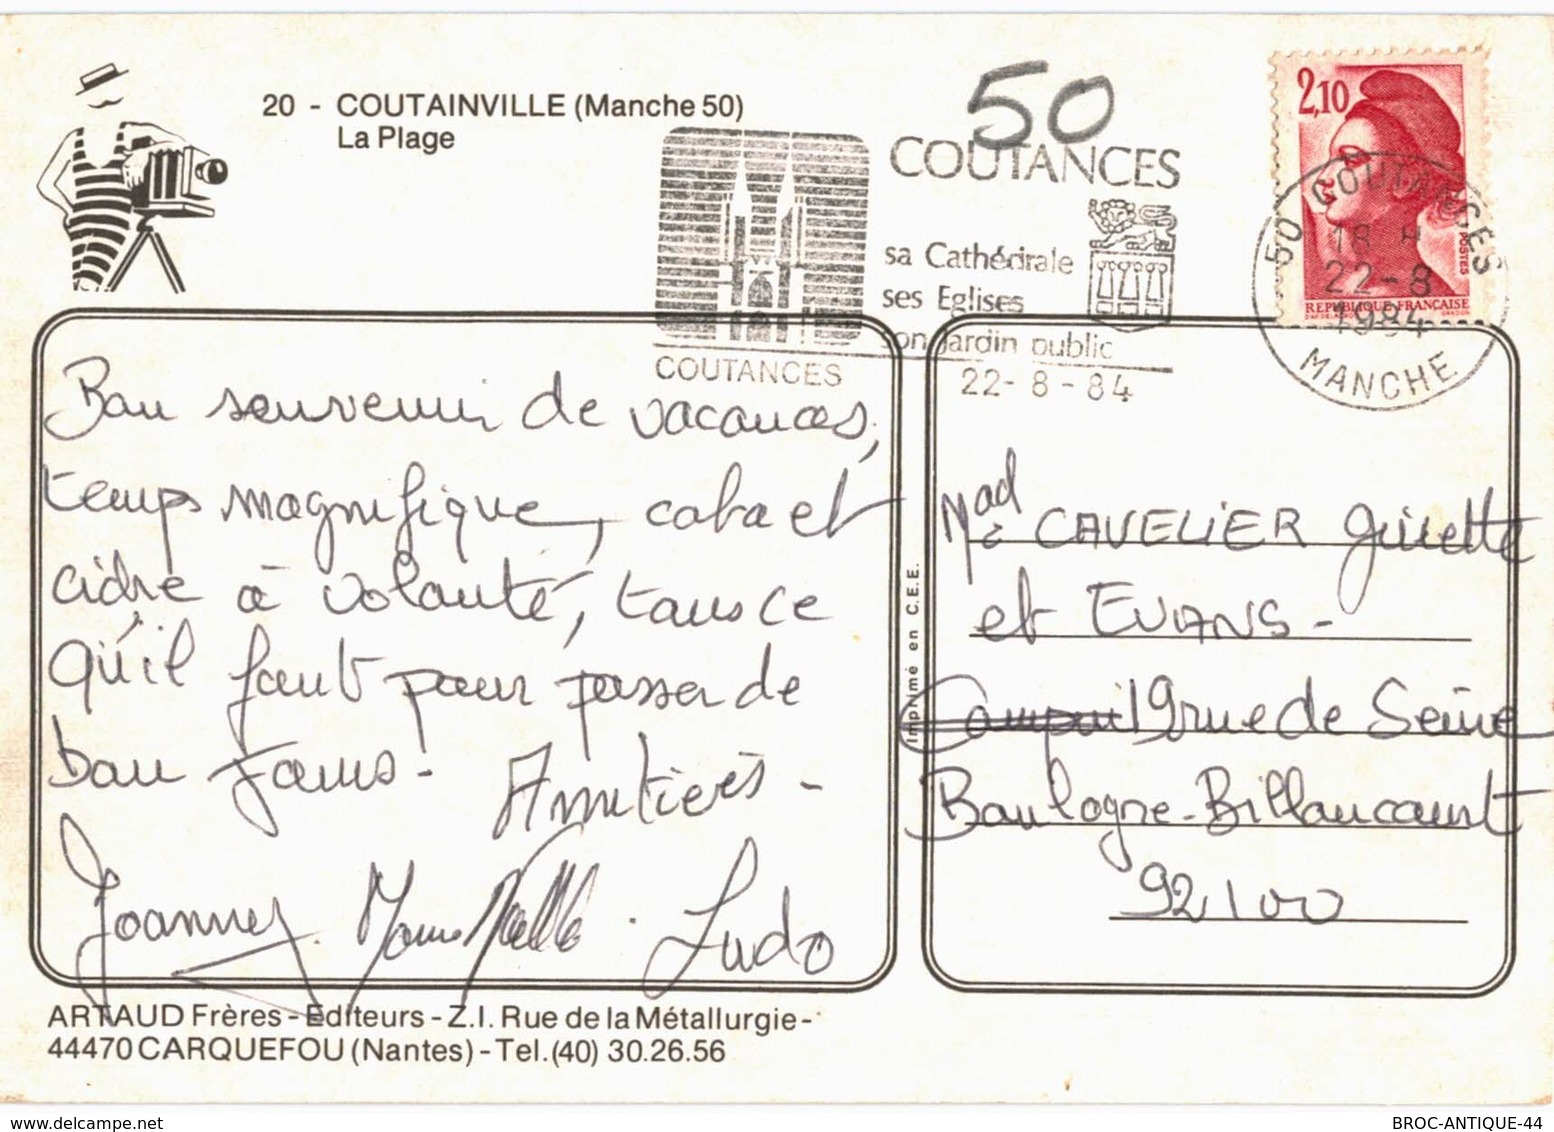 20 - COUTAINVILLE (Manche 50)
La Plage
50
COUTANCES
sa Cathédrale
ses Eglises
son jardin public
COUTANCES
22-8-84
2,10
POSTES
REPUBLIQUE FRANÇAISE
50 COUTANCES
18 H
22-8
1984
MANCHE
Bon souvenir de vacances,
temps magnifique, calva et
cidre à volonté, tous ce
qu'il faut pour passer de
bon jours. Amitiés -
Joannes. Ludo
Imprimé en C.E.E.
Mad
e CAVELIER Ginette
et EVANS -
19 rue de Seine
Boulogne-Billancourt
92100
ARTAUD Frères - Editeurs - Z.I. Rue de la Métallurgie -
44470 CARQUEFOU (Nantes) - Tel. (40) 30.26.56
BROC-ANTIQUE-44